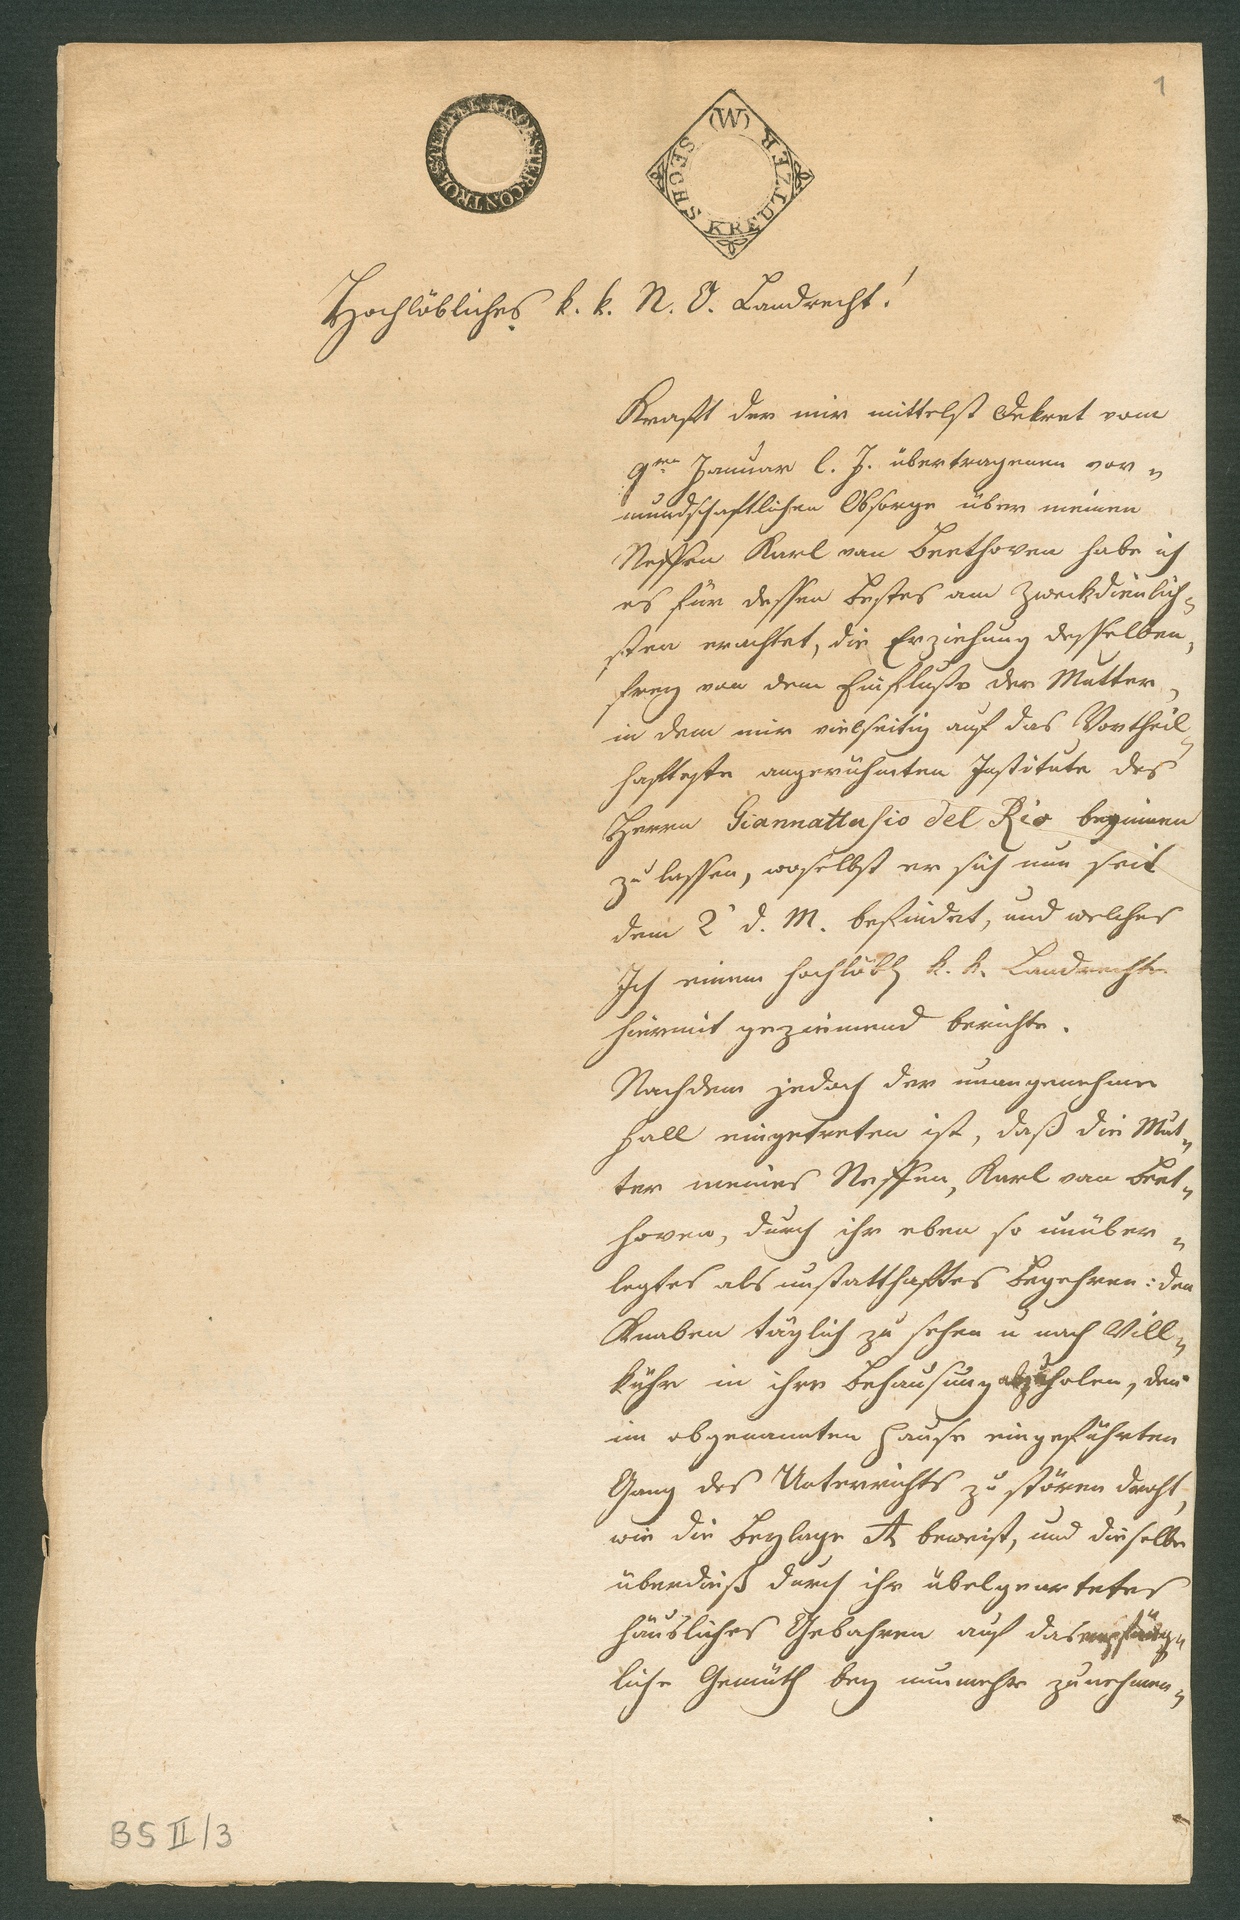 1
STEMPEL KK OESTER CONTROL
(W) SECHS KREUTZER
Hochlöbliches k. k. N. O. Landrecht!
Kraft der mir mittelst Dekret vom
9ten Januar l. J. übertragenen vor„
mundschaftlichen Obsorge über meinen
Neffen Karl van Beethoven habe ich
es für dessen Bestes am Zweckdienlich„
sten erachtet, die Erziehung desselben,
frey von dem Einfluße der Mutter,
in dem mir vielseitig auf das Vortheil„
hafteste angerühmten Institute des
Herrn Giannattasio del Rio beginnen
zu lassen, woselbst er sich nun seit
dem 2' d. M. befindet, und welches
Ich einem hochlöbl k. k. Landrechte
hiermit geziemend berichte.
Nachdem jedoch der unangenehme
Fall eingetreten ist, daß die Mut„
ter meines Neffen, Karl van Beet„
hoven, durch ihr eben so unüber„
legtes als unstatthaftes Begehren: den
Knaben täglich zu sehen u nach Will„
kühr in ihre Behausung abzuholen, den
im obgenannten Hause eingeführten
Gang des Unterrichts zu stören droht,
wie die Beylage A beweist, und dieselbe
überdieß durch ihr übelgeartetes
häusliches Gebahren auf das empfäng„
liche Gemüth bey nunmehr zunehmen„
BS II/3